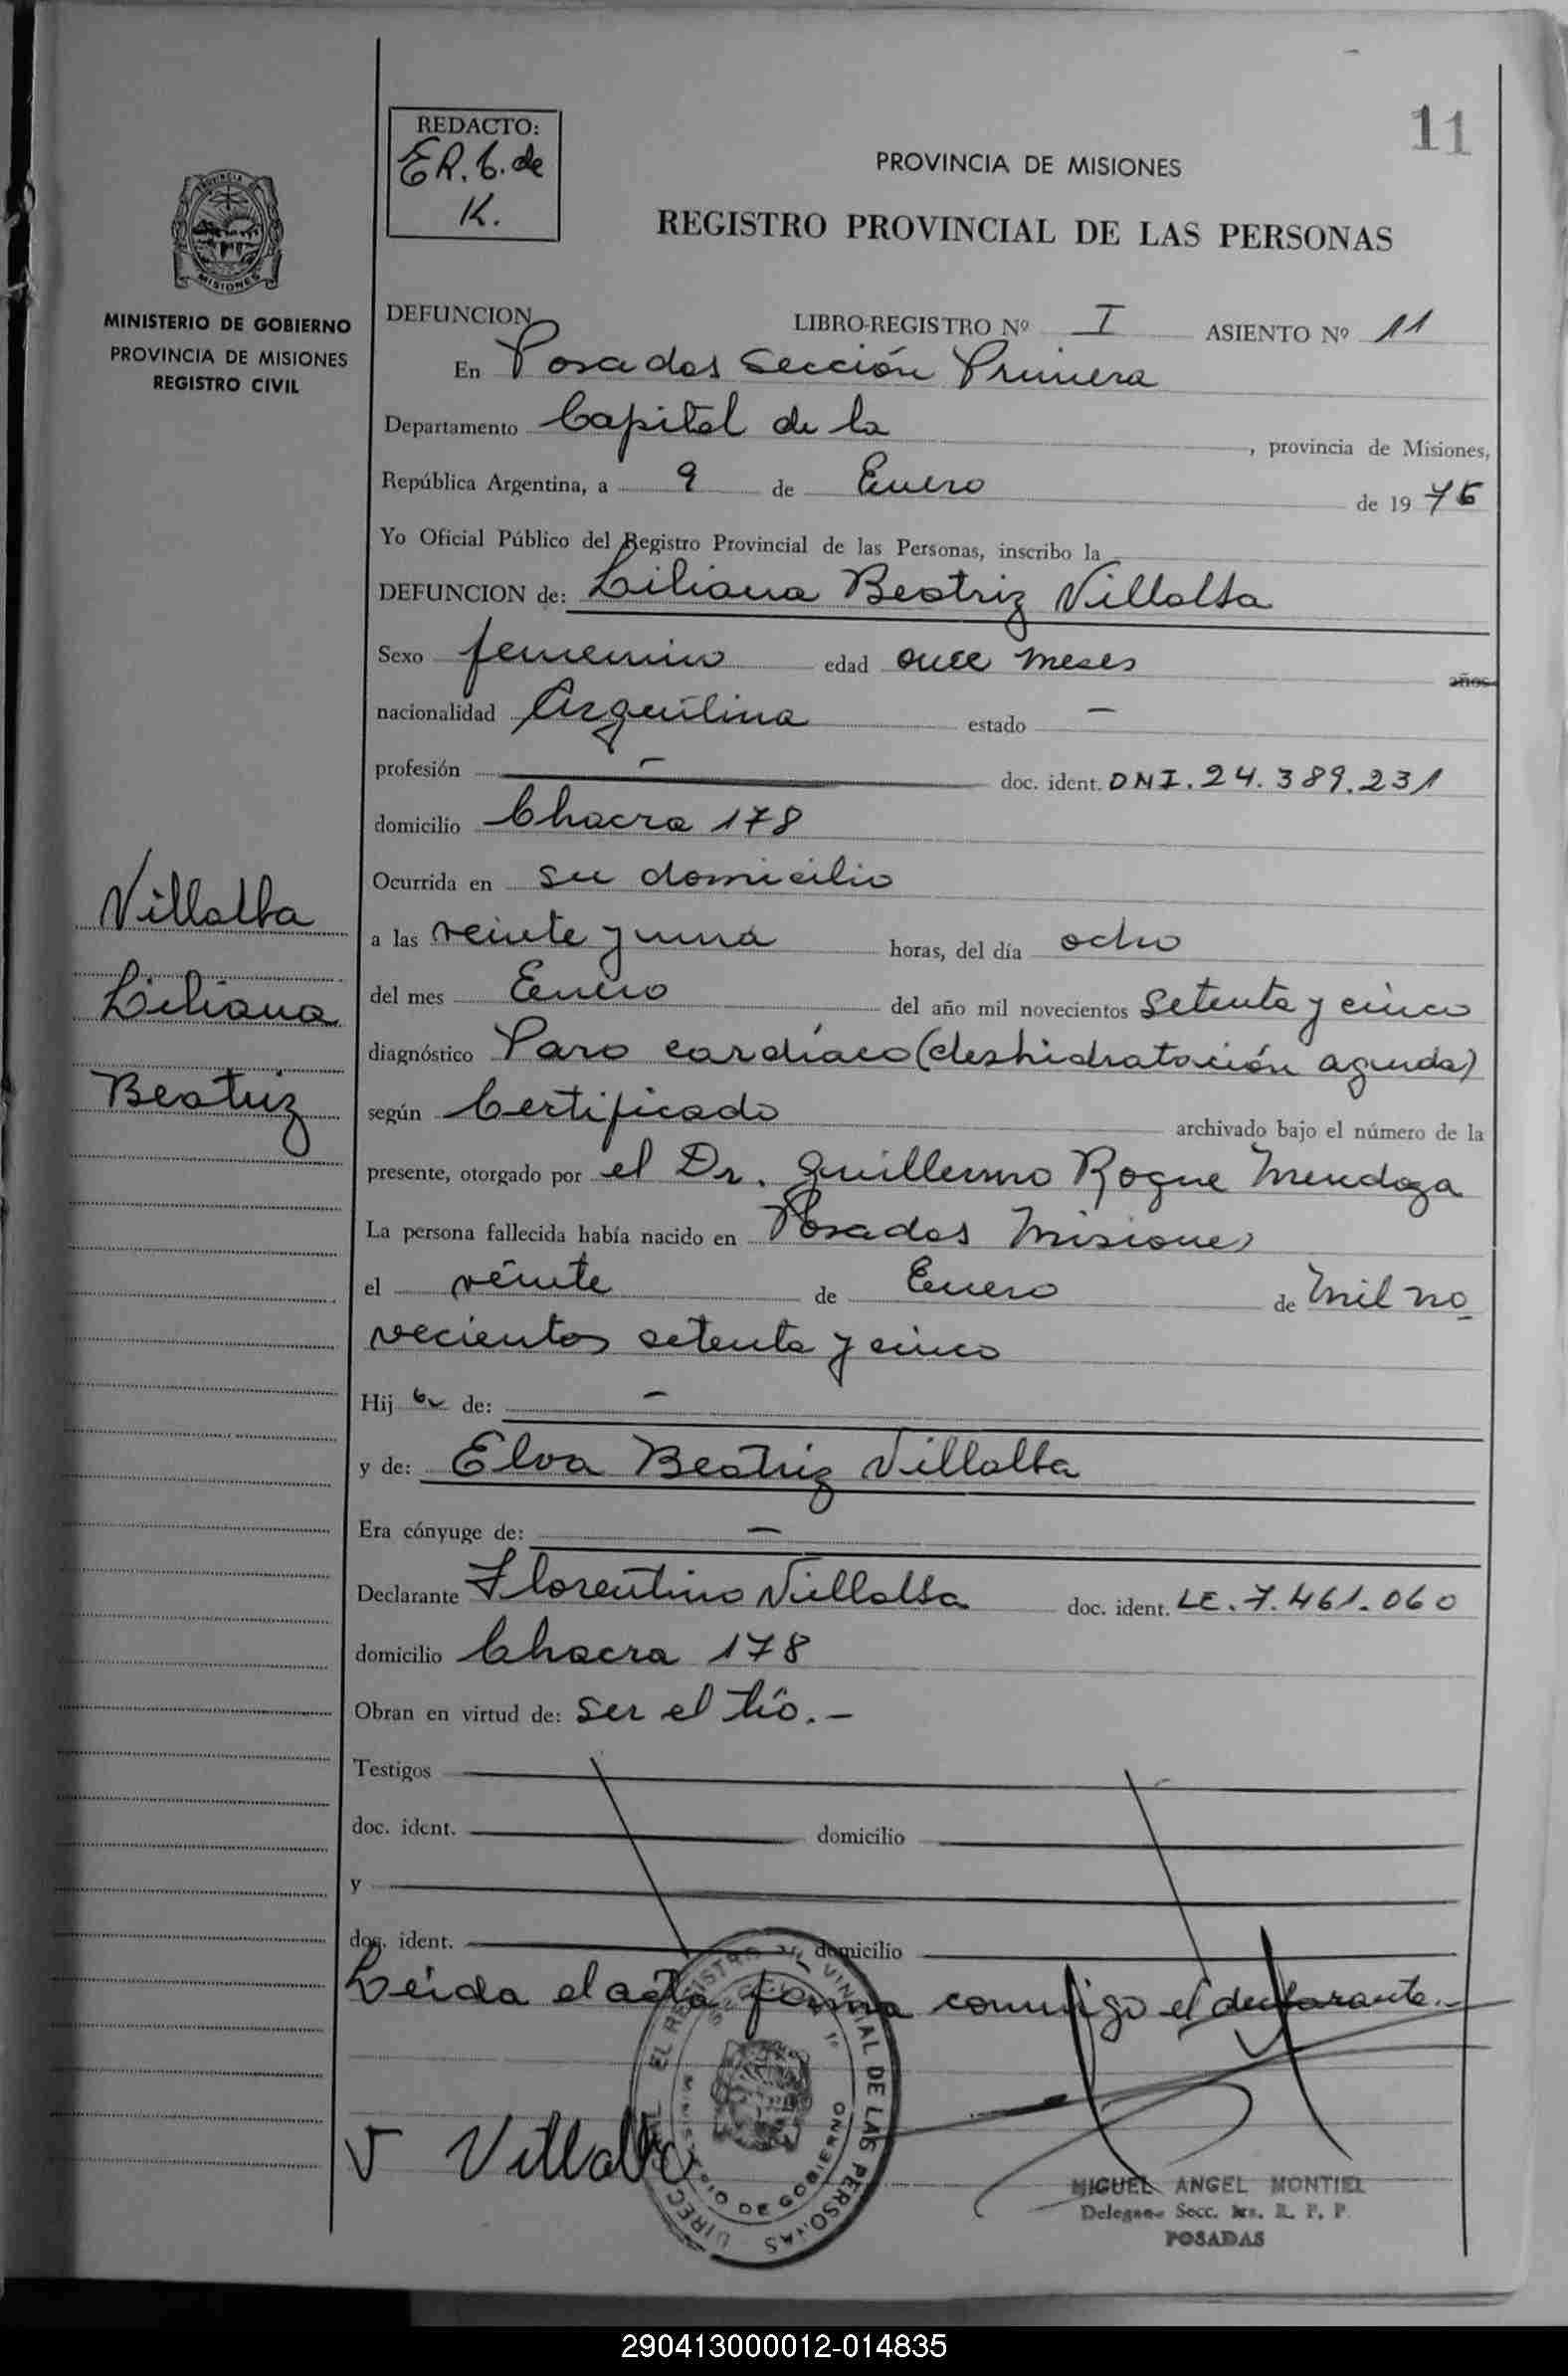 11
REDACTO:
E R. b. de
K.
PROVINCIA DE MISIONES
REGISTRO PROVINCIAL DE LAS PERSONAS
MISIONES
MINISTERIO DE GOBIERNO
PROVINCIA DE MISIONES
REGISTRO CIVIL
DEFUNCION LIBRO-REGISTRO Nº I ASIENTO Nº 11
En Posadas Sección Primera
Departamento Capital de la , provincia de Misiones,
República Argentina, a 9 de Enero de 1976
Yo Oficial Público del Registro Provincial de las Personas, inscribo la
DEFUNCION de: Liliana Beatriz Villalba
Sexo femenino edad once meses años
nacionalidad Argentina estado –
profesión – doc. ident. DNI. 24.389.231
domicilio Chacra 178
Ocurrida en su domicilio
a las veinte y una horas, del día ocho
del mes Enero del año mil novecientos setenta y cinco
diagnóstico Paro cardíaco (deshidratación aguda)
según Certificado archivado bajo el número de la
presente, otorgado por el Dr. Guillermo Roque Mendoza
La persona fallecida había nacido en Posadas Misiones
el veinte de Enero de mil no
vecientos setenta y cinco
Hij a de: –
y de: Elva Beatriz Villalba
Era cónyuge de: –
Declarante Florentino Villalba doc. ident. LE. 7.461.060
domicilio Chacra 178
Obran en virtud de: ser el tío. –
Testigos
doc. ident. domicilio
y
doc. ident. domicilio
Leída el acta firma conmigo el declarante.–
Villalba
Liliana
Beatriz
v Villalba
EL REGISTRO PROVINCIAL DE LAS PERSONAS
MINISTERIO DE GOBIERNO
MIGUEL ANGEL MONTIEL
Secc. R. P. P.
POSADAS
290413000012-014835